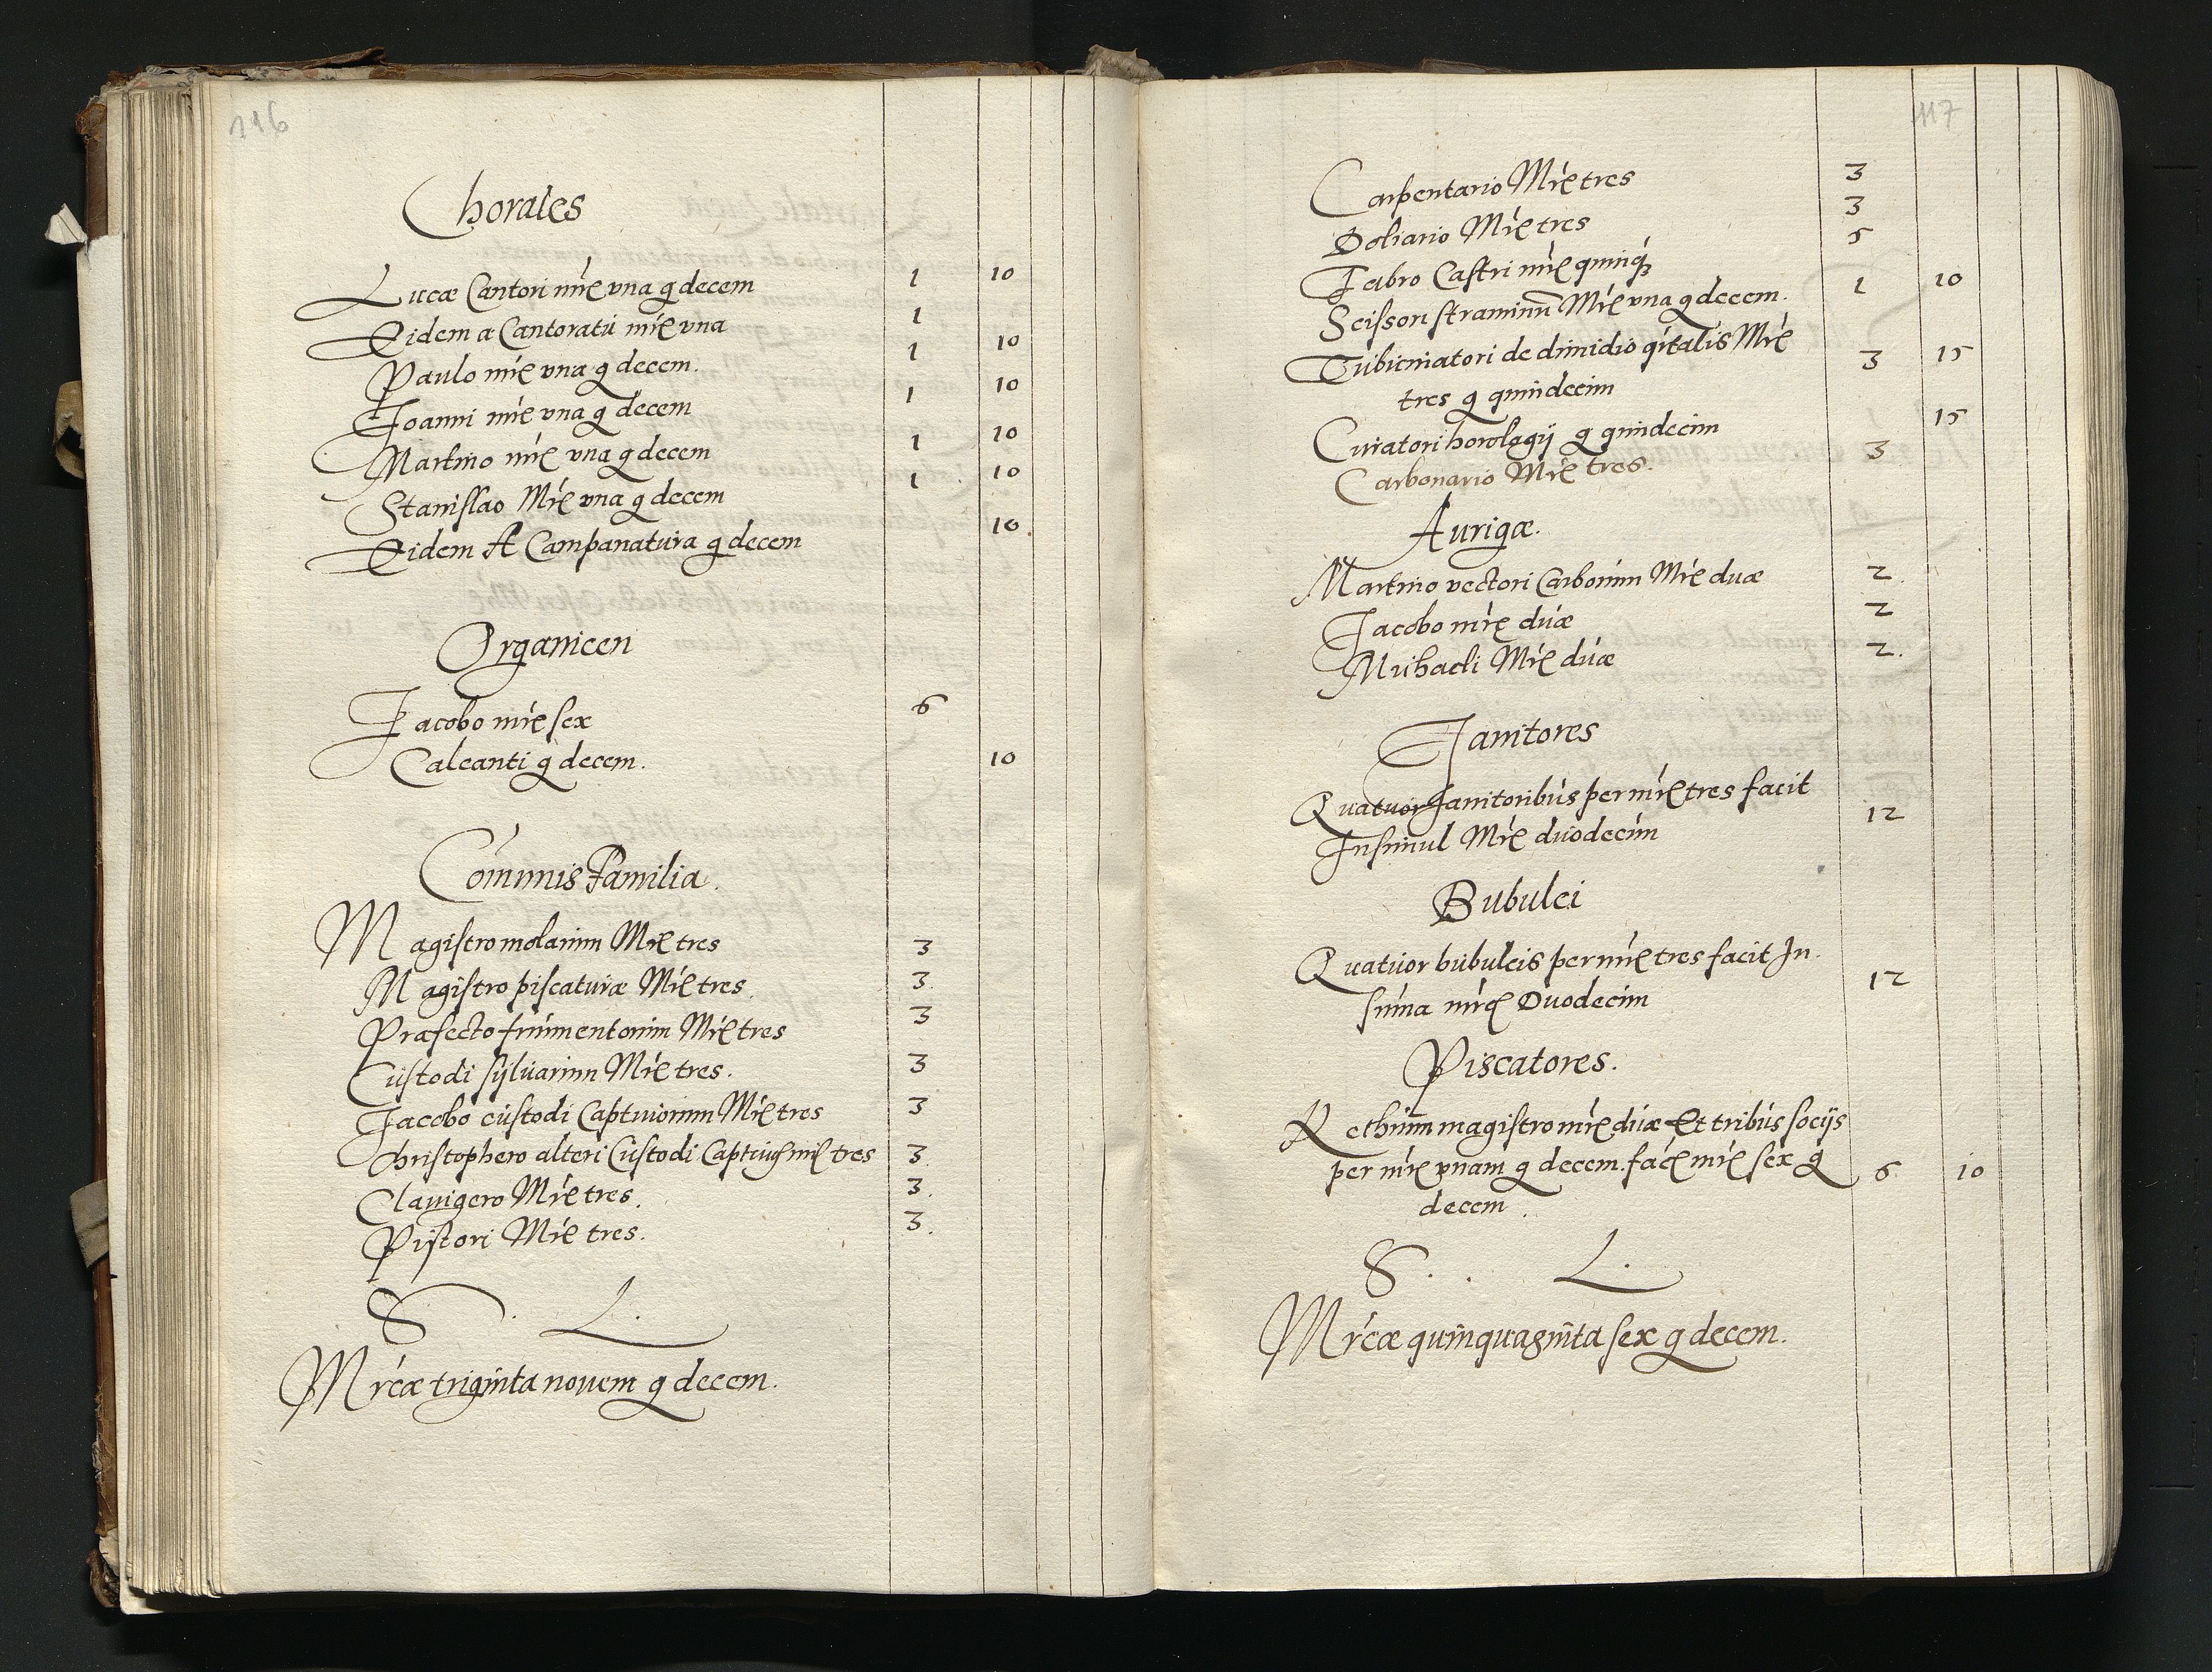 116
Chorales
Lucæ Cantori mrę vna g decem 1 10
Eidem a Cantoratu mrę vna 1
Paulo mrę vna g decem. 1 10
Joanni mrę vna g decem 1 10
Martino mrę vna g decem 1 10
Stanislao Mrę vna g decem 1 10
Eidem A Campanatura g decem 10
Organicen
Jacobo mrę sex 6
Calcanti g decem. 10
Comunis Familia.
Magistro molarum Mrę tres 3
Magistro piscaturæ Mrę tres. 3
Præfecto frumentorum Mrę tres 3
Custodi sylvarum Mrę tres. 3
Jacobo custodi Captivorum Mrę tres 3
Christophero alteri Custodi Captivorum mrę tres 3
Clavigero Mrę tres. 3.
Pistori Mrę tres. 3.
S. L.
Mrcæ triginta novem g decem.
117
Carpentario Mrę tres 3
Doliario Mrę tres 3
Fabro Castri mrę quinq 5
Scissori straminum Mrę vna g decem. 1 10
Tubicinatori de dimidio qrtalis Mrę
tres g quindecim 3 15
Curatori horologij g quindecim 15
Carbonario Mrę tres. 3
Aurigæ.
Martino vectori Carbonum Mrę duæ 2.
Jacobo mrę duæ 2
Michaeli Mrę duæ 2.
Janitores
Quatuor Janitoribus per mrę tres facit
Insimul Mrę duodecim 12
Bubulci
Quatuor bubulcis per mrę tres facit In
suma mrę Duodecim 12
Piscatores.
Rethium magistro mrę duæ Et tribus socijs
per mrę vnam g decem. facę mrę sex g 6 10
decem.
S. . L.
Mrcæ quinquaginta sex g decem.